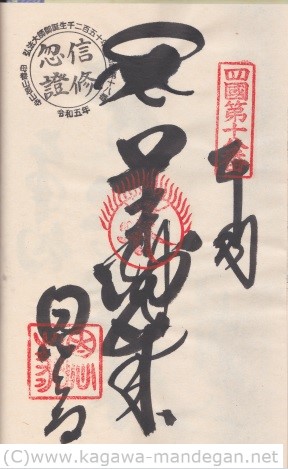 四國第十八番
奉納
薬師如来
恩山寺
弘法大師御誕生千二百五十年
信修
忍證
令和五年
(C)www.kagawa-mandegan.net